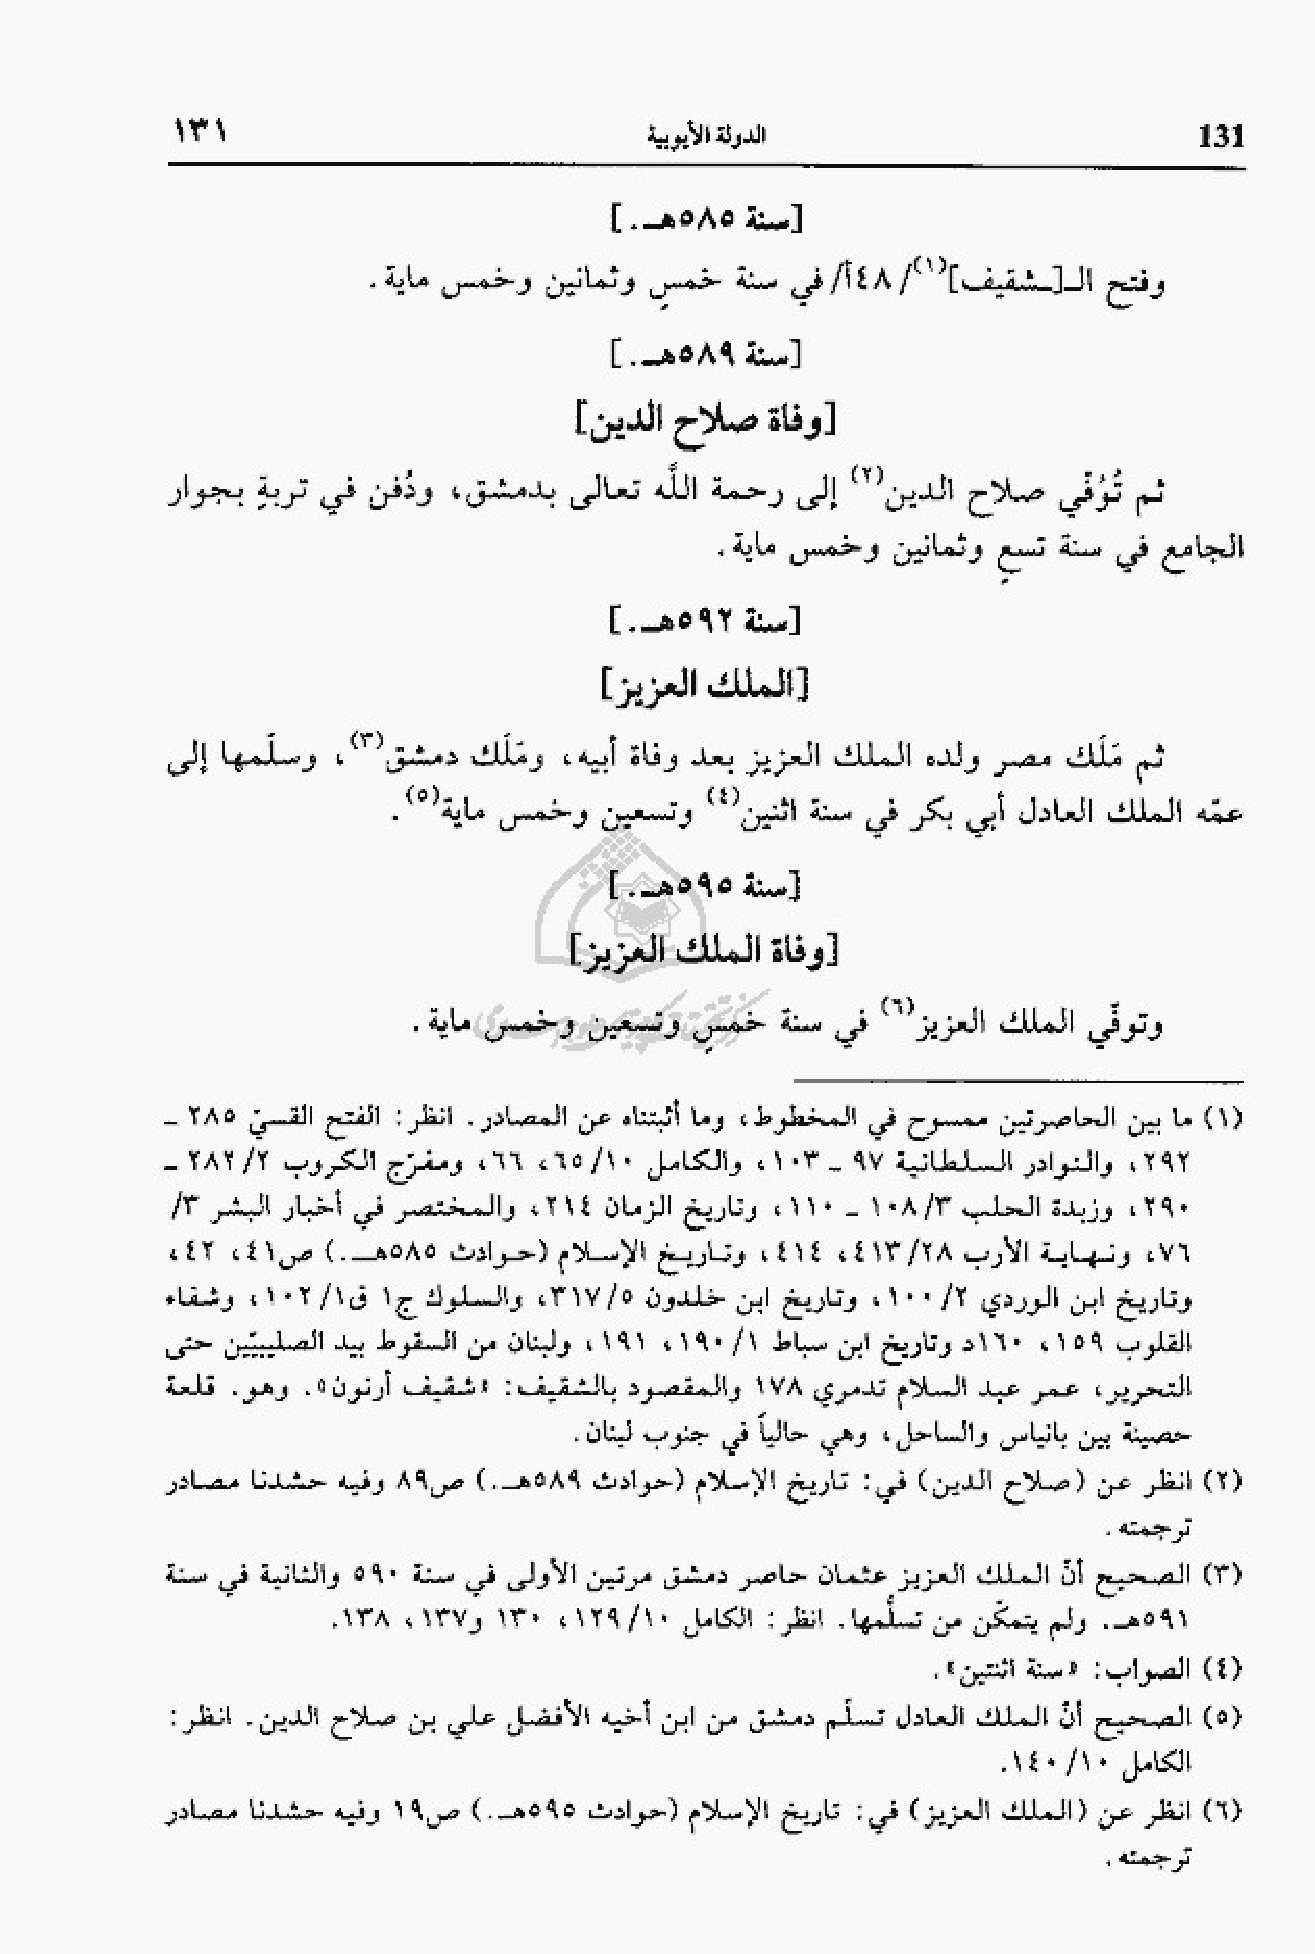 131 الدولة الأيوبية ١٣١
[سنة ٥٨٥هـ.]
وفتح الـ[ـشقيف](١)/ ٤٨أ/ في سنة خمسٍ وثمانين وخمس ماية.
[سنة ٥٨٩هـ.]
[وفاة صلاح الدين]
ثم تُوُفّي صلاح الدين(٢) إلى رحمة اللَّه تعالى بدمشق، ودُفن في تربةٍ بجوار
الجامع في سنة تسعٍ وثمانين وخمس ماية.
[سنة ٥٩٢هـ.]
[الملك العزيز]
ثم مَلَك مصر ولده الملك العزيز بعد وفاة أبيه، ومَلَك دمشق(٣)، وسلّمها إلى
عمّه الملك العادل أبي بكر في سنة اثنين(٤) وتسعين وخمس ماية(٥).
[سنة ٥٩٥هـ.]
[وفاة الملك العزيز]
وتوفّي الملك العزيز(٦) في سنة خمسٍ وتسعين وخمس ماية.
(١) ما بين الحاصرتين ممسوح في المخطوط، وما أثبتناه عن المصادر. انظر: الفتح القسيّ ٢٨٥ ـ
٢٩٢، والنوادر السلطانية ٩٧ ـ ١٠٣، والكامل ١٠/ ٦٥، ٦٦، ومفرّج الكروب ٢/ ٢٨٢ ـ
٢٩٠، وزبدة الحلب ٣/ ١٠٨ ـ ١١٠، وتاريخ الزمان ٢١٤، والمختصر في أخبار البشر ٣/
٧٦، ونهاية الأرب ٢٨/ ٤١٣، ٤١٤، وتاريخ الإسلام (حوادث ٥٨٥هـ.) ص٤١، ٤٢،
وتاريخ ابن الوردي ٢/ ١٠٠، وتاريخ ابن خلدون ٥/ ٣١٧، والسلوك ج١ ق١/ ١٠٢، وشفاء
القلوب ١٥٩، ١٦٠د وتاريخ ابن سباط ١/ ١٩٠، ١٩١، ولبنان من السقوط بيد الصليبيّين حتى
التحرير، عمر عبد السلام تدمري ١٧٨ والمقصود بالشقيف: «شقيف أرنون». وهو. قلعة
حصينة بين بانياس والساحل، وهي حالياً في جنوب لبنان.
(٢) انظر عن (صلاح الدين) في: تاريخ الإسلام (حوادث ٥٨٩هـ.) ص٨٩ وفيه حشدنا مصادر
ترجمته.
(٣) الصحيح أنّ الملك العزيز عثمان حاصر دمشق مرتين الأولى في سنة ٥٩٠ والثانية في سنة
٥٩١هـ. ولم يتمكّن من تسلّمها. انظر: الكامل ١٠/ ١٢٩، ١٣٠ و١٣٧، ١٣٨.
(٤) الصواب: «سنة اثنتين».
(٥) الصحيح أنّ الملك العادل تسلّم دمشق من ابن أخيه الأفضل علي بن صلاح الدين. انظر:
الكامل ١٠/ ١٤٠.
(٦) انظر عن (الملك العزيز) في: تاريخ الإسلام (حوادث ٥٩٥هـ.) ص١٩ وفيه حشدنا مصادر
ترجمته.